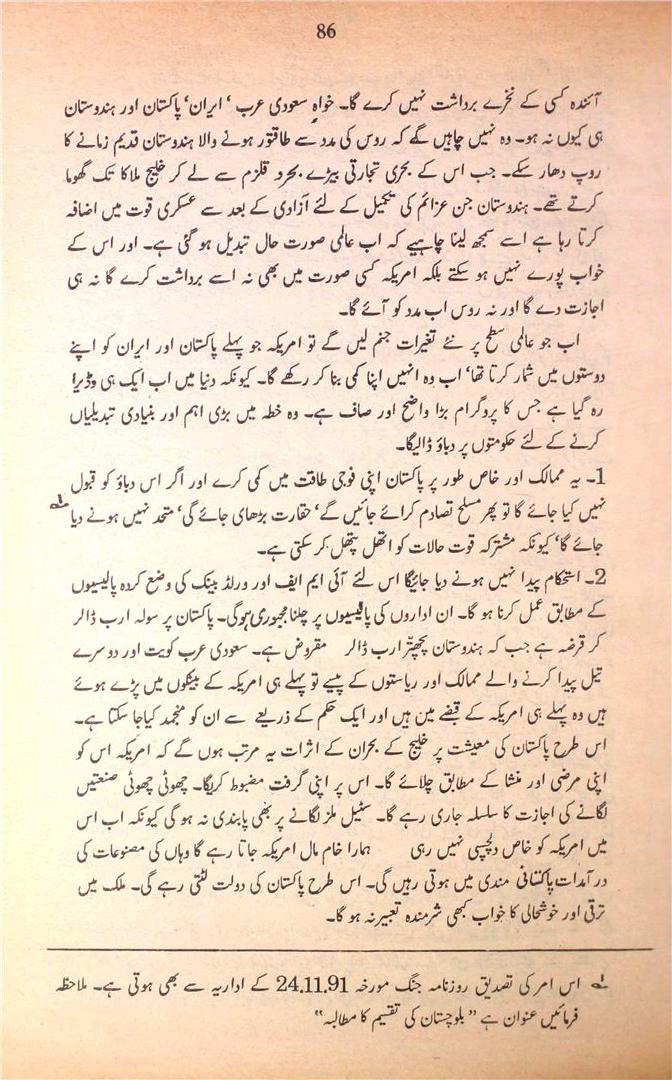 86
آئندہ کسی کے نخرے برداشت نہیں کرے گا۔ خواہ سعودی عرب ' ایران' پاکستان اور ہندوستان
ہی کیوں نہ ہو۔ وہ نہیں چاہیں گے کہ روس کی مدد سے طاقتور ہونے والا ہندوستان قدیم زمانے کا
روپ دھار سکے۔ جب اس کے بحری تجارتی بیڑے بحرہ قلزم سے لے کر خلیج ملاکا تک گھوما
کرتے تھے۔ ہندوستان جن عزائم کی تکمیل کے لئے آزادی کے بعد سے عسکری قوت میں اضافہ
کرتا رہا ہے اسے سمجھ لینا چاہیے کہ اب عالمی صورت حال تبدیل ہو گئی ہے۔ اور اس کے
خواب پورے نہیں ہو سکتے بلکہ امریکہ کسی صورت میں بھی نہ اسے برداشت کرے گا نہ ہی
اجازت دے گا اور نہ روس اب مدد کو آئے گا۔
اب جو عالمی سطح پر نئے تغیرات جنم لیں گے تو امریکہ جو پہلے پاکستان اور ایران کو اپنے
دوستوں میں شمار کرتا تھا' اب وہ انہیں اپنا کمی بنا کر رکھے گا۔ کیونکہ دنیا میں اب ایک ہی وڈیرا
رہ گیا ہے جس کا پروگرام بڑا واضح اور صاف ہے۔ وہ خطہ میں بڑی اہم اور بنیادی تبدیلیاں
کرنے کے لئے حکومتوں پر دباؤ ڈالیگا۔
1۔ یہ ممالک اور خاص طور پر پاکستان اپنی فوجی طاقت میں کمی کرے اور اگر اس دباؤ کو قبول
نہیں کیا جائے گا تو پھر مسلح تصادم کرائے جائیں گے' حقارت بڑھای جائے گی' متحد نہیں ہونے دیا
جائے گا' کیونکہ مشترکہ قوت حالات کو اتھل پتھل کر سکتی ہے۔
2۔ استحکام پیدا نہیں ہونے دیا جائیگا اس لئے آئی ایم ایف اور ورلڈ بینک کی وضع کردہ پالیسیوں
کے مطابق عمل کرنا ہو گا۔ ان اداروں کی پالیسیوں پر چلنا مجبوری ہوگی۔ پاکستان پر سولہ ارب ڈالر
کر قرضہ ہے جب کہ ہندوستان پچھتر ارب ڈالر مقروض ہے۔ سعودی عرب کویت اور دوسرے
تیل پیدا کرنے والے ممالک اور ریاستوں کے پیسے تو پہلے ہی امریکہ کے بینکوں میں پڑے ہوئے
ہیں وہ پہلے ہی امریکہ کے قبضے مین ہیں اور ایک حکم کے ذریعے سے ان کو منجمد کیاجا سکتا ہے۔
اس طرح پاکستان کی معیشت پر خلیج کے بحران کے اثرات یہ مرتب ہوں گے کہ امریکہ اس کو
اپنی مرضی اور منشا کے مطابق چلائے گا۔ اس پر اپنی گرفت مضبوط کریگا۔ چھوٹی چھوٹی صنعتیں
لگانے کی اجازت کا سلسلہ جاری رہے گا۔ سٹیل ملز لگانے پر بھی پابندی نہ ہو گی کیونکہ اب اس
میں امریکہ کو خاص دلچسپی نہیں رہی ہمارا خام مال امریکہ جاتا رہے گا وہاں کی مصنوعات کی
درآمدات پاکستانی منڈی میں ہوتی رہیں گی۔ اس طرح پاکستان کی دولت لٹتی رہے گی۔ ملک میں
ترقی اور خوشحالی کا خواب کبھی شرمندہ تعبیر نہ ہو گا۔
اس امر کی تصدیق روزنامہ جنگ مورخہ 24.11.91 کے اداریہ سے بھی ہوتی ہے۔ ملاحظہ
فرمائیں عنوان ہے "بلوچستان کی تقسیم کا مطالبہ"